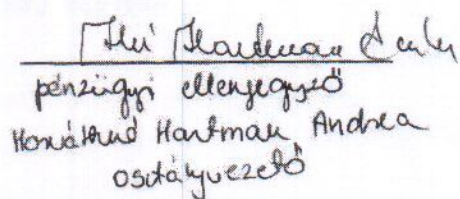 Hné Hartman Andrea
pénzügyi ellenjegyző
Horváthné Hartman Andrea
osztályvezető